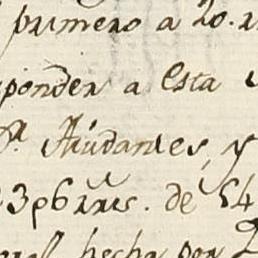 primero a 20. r
sponder a Esta
Ayudantes, y
de 54
hecha por